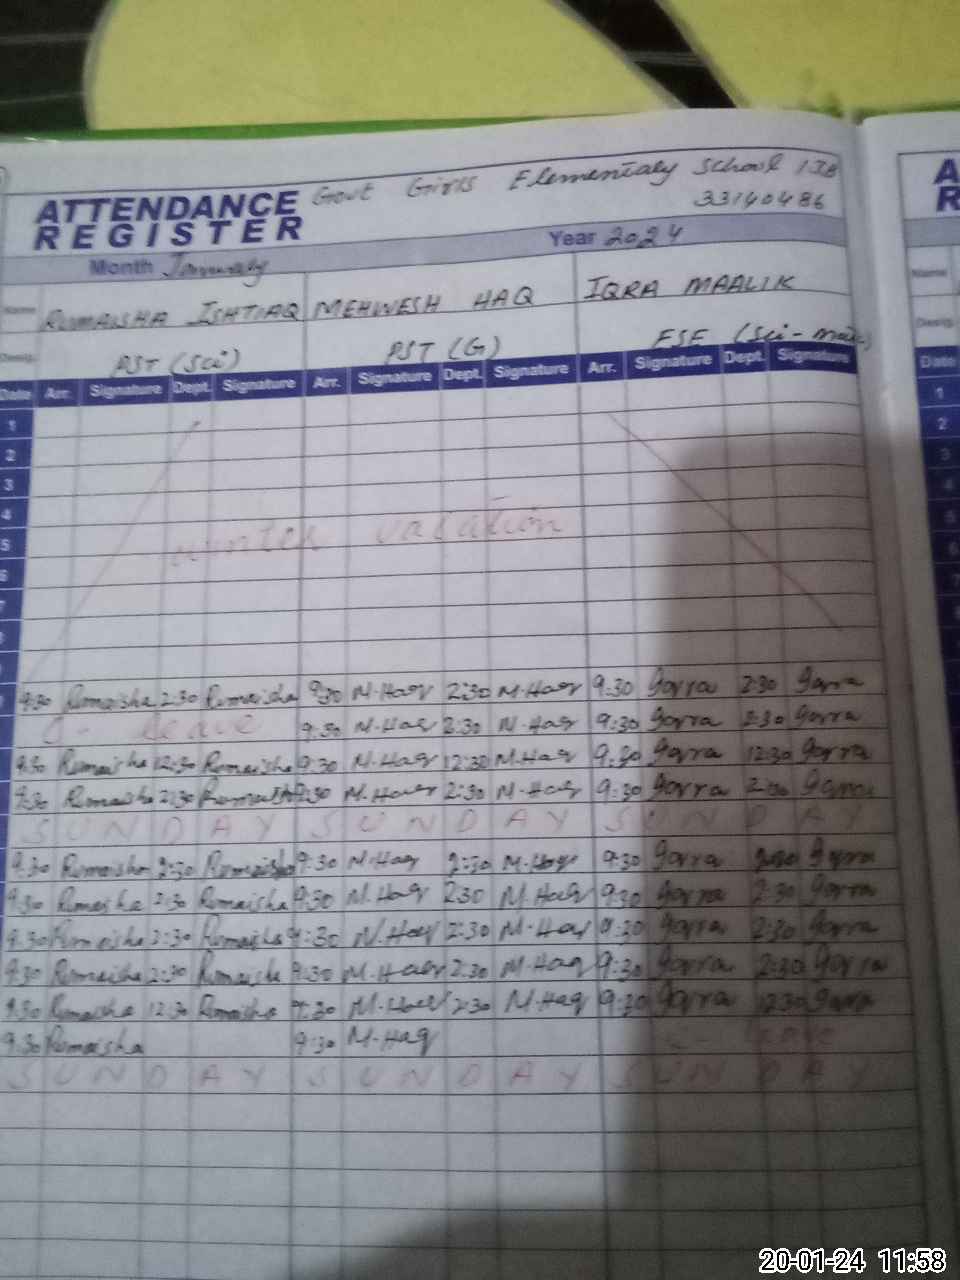 Govt Girls Elementary School 1JB
ATTENDANCE
REGISTER
33140486
Month January Year 2024
Name RUMAISHA ISHTIAQ MEHWESH HAQ IQRA MAALIK
Desig. PST (Sci) PST (G) ESE (Sci-
Date Arr. Signature Dept. Signature Arr. Signature Dept. Signature Arr. Signature Dept. Signature
1
2
3
4
winter vacation
5
6
7
9:30 Rumaisha 2:30 Rumaisha 9:30 M.Haq 2:30 M.Haq 9:30 Iqra 2:30 Iqra
leave 9:30 M.Haq 2:30 M.Haq 9:30 Iqra 2:30 Iqra
9:30 Rumaisha 12:30 Rumaisha 9:30 M.Haq 12:30 M.Haq 9:30 Iqra 12:30 Iqra
9:30 Rumaisha 2:30 Rumaisha 9:30 M.Haq 2:30 M.Haq 9:30 Iqra 2:30 Iqra
SUNDAY SUNDAY SUNDAY
9:30 Rumaisha 2:30 Rumaisha 9:30 M.Haq 2:30 M.Haq 9:30 Iqra 2:30 Iqra
9:30 Rumaisha 2:30 Rumaisha 9:30 M.Haq 2:30 M.Haq 9:30 Iqra 2:30 Iqra
9:30 Rumaisha 2:30 Rumaisha 9:30 M.Haq 2:30 M.Haq 9:30 Iqra 2:30 Iqra
9:30 Rumaisha 2:30 Rumaisha 9:30 M.Haq 2:30 M.Haq 9:30 Iqra 2:30 Iqra
9:30 Rumaisha 12:30 Rumaisha 9:30 M.Haq 2:30 M.Haq 9:30 Iqra 12:30 Iqra
9:30 Rumaisha 9:30 M.Haq leave
SUNDAY SUNDAY SUNDAY
A
R
Name
Desig.
Date
1
2
3
4
20-01-24 11:58